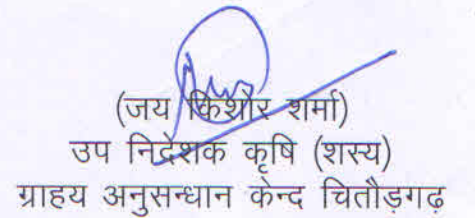 (जय किशोर शर्मा)
उप निदेशक कृषि (शस्य)
ग्राहय अनुसन्धान केन्द चितौड़गढ़